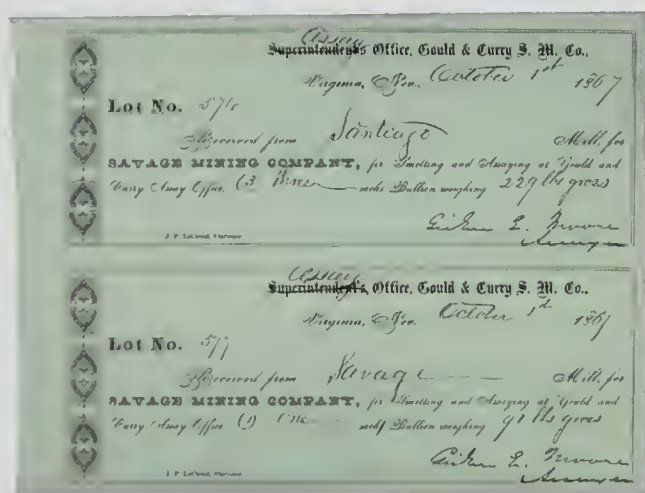 Assay
Superintendent's Office, Gould & Curry S. M. Co.,
Virginia, Nev., October 1st 1867
Lot No. 576
Received from Santiago Mill, for
SAVAGE MINING COMPANY, for Smelting and Assaying at Gould and
Curry Assay Office (3 three sacks Bullion weighing 229 lbs gross
L. Moore
Assayer
Assay
Superintendent's Office, Gould & Curry S. M. Co.,
Virginia, Nev. October 1st 1867
Lot No. 577
Received from Savage Mill, for
SAVAGE MINING COMPANY, for Smelting and Assaying at Gould and
Curry Assay Office (1) One sack Bullion weighing 91 lbs gross
L. Moore
Assayer